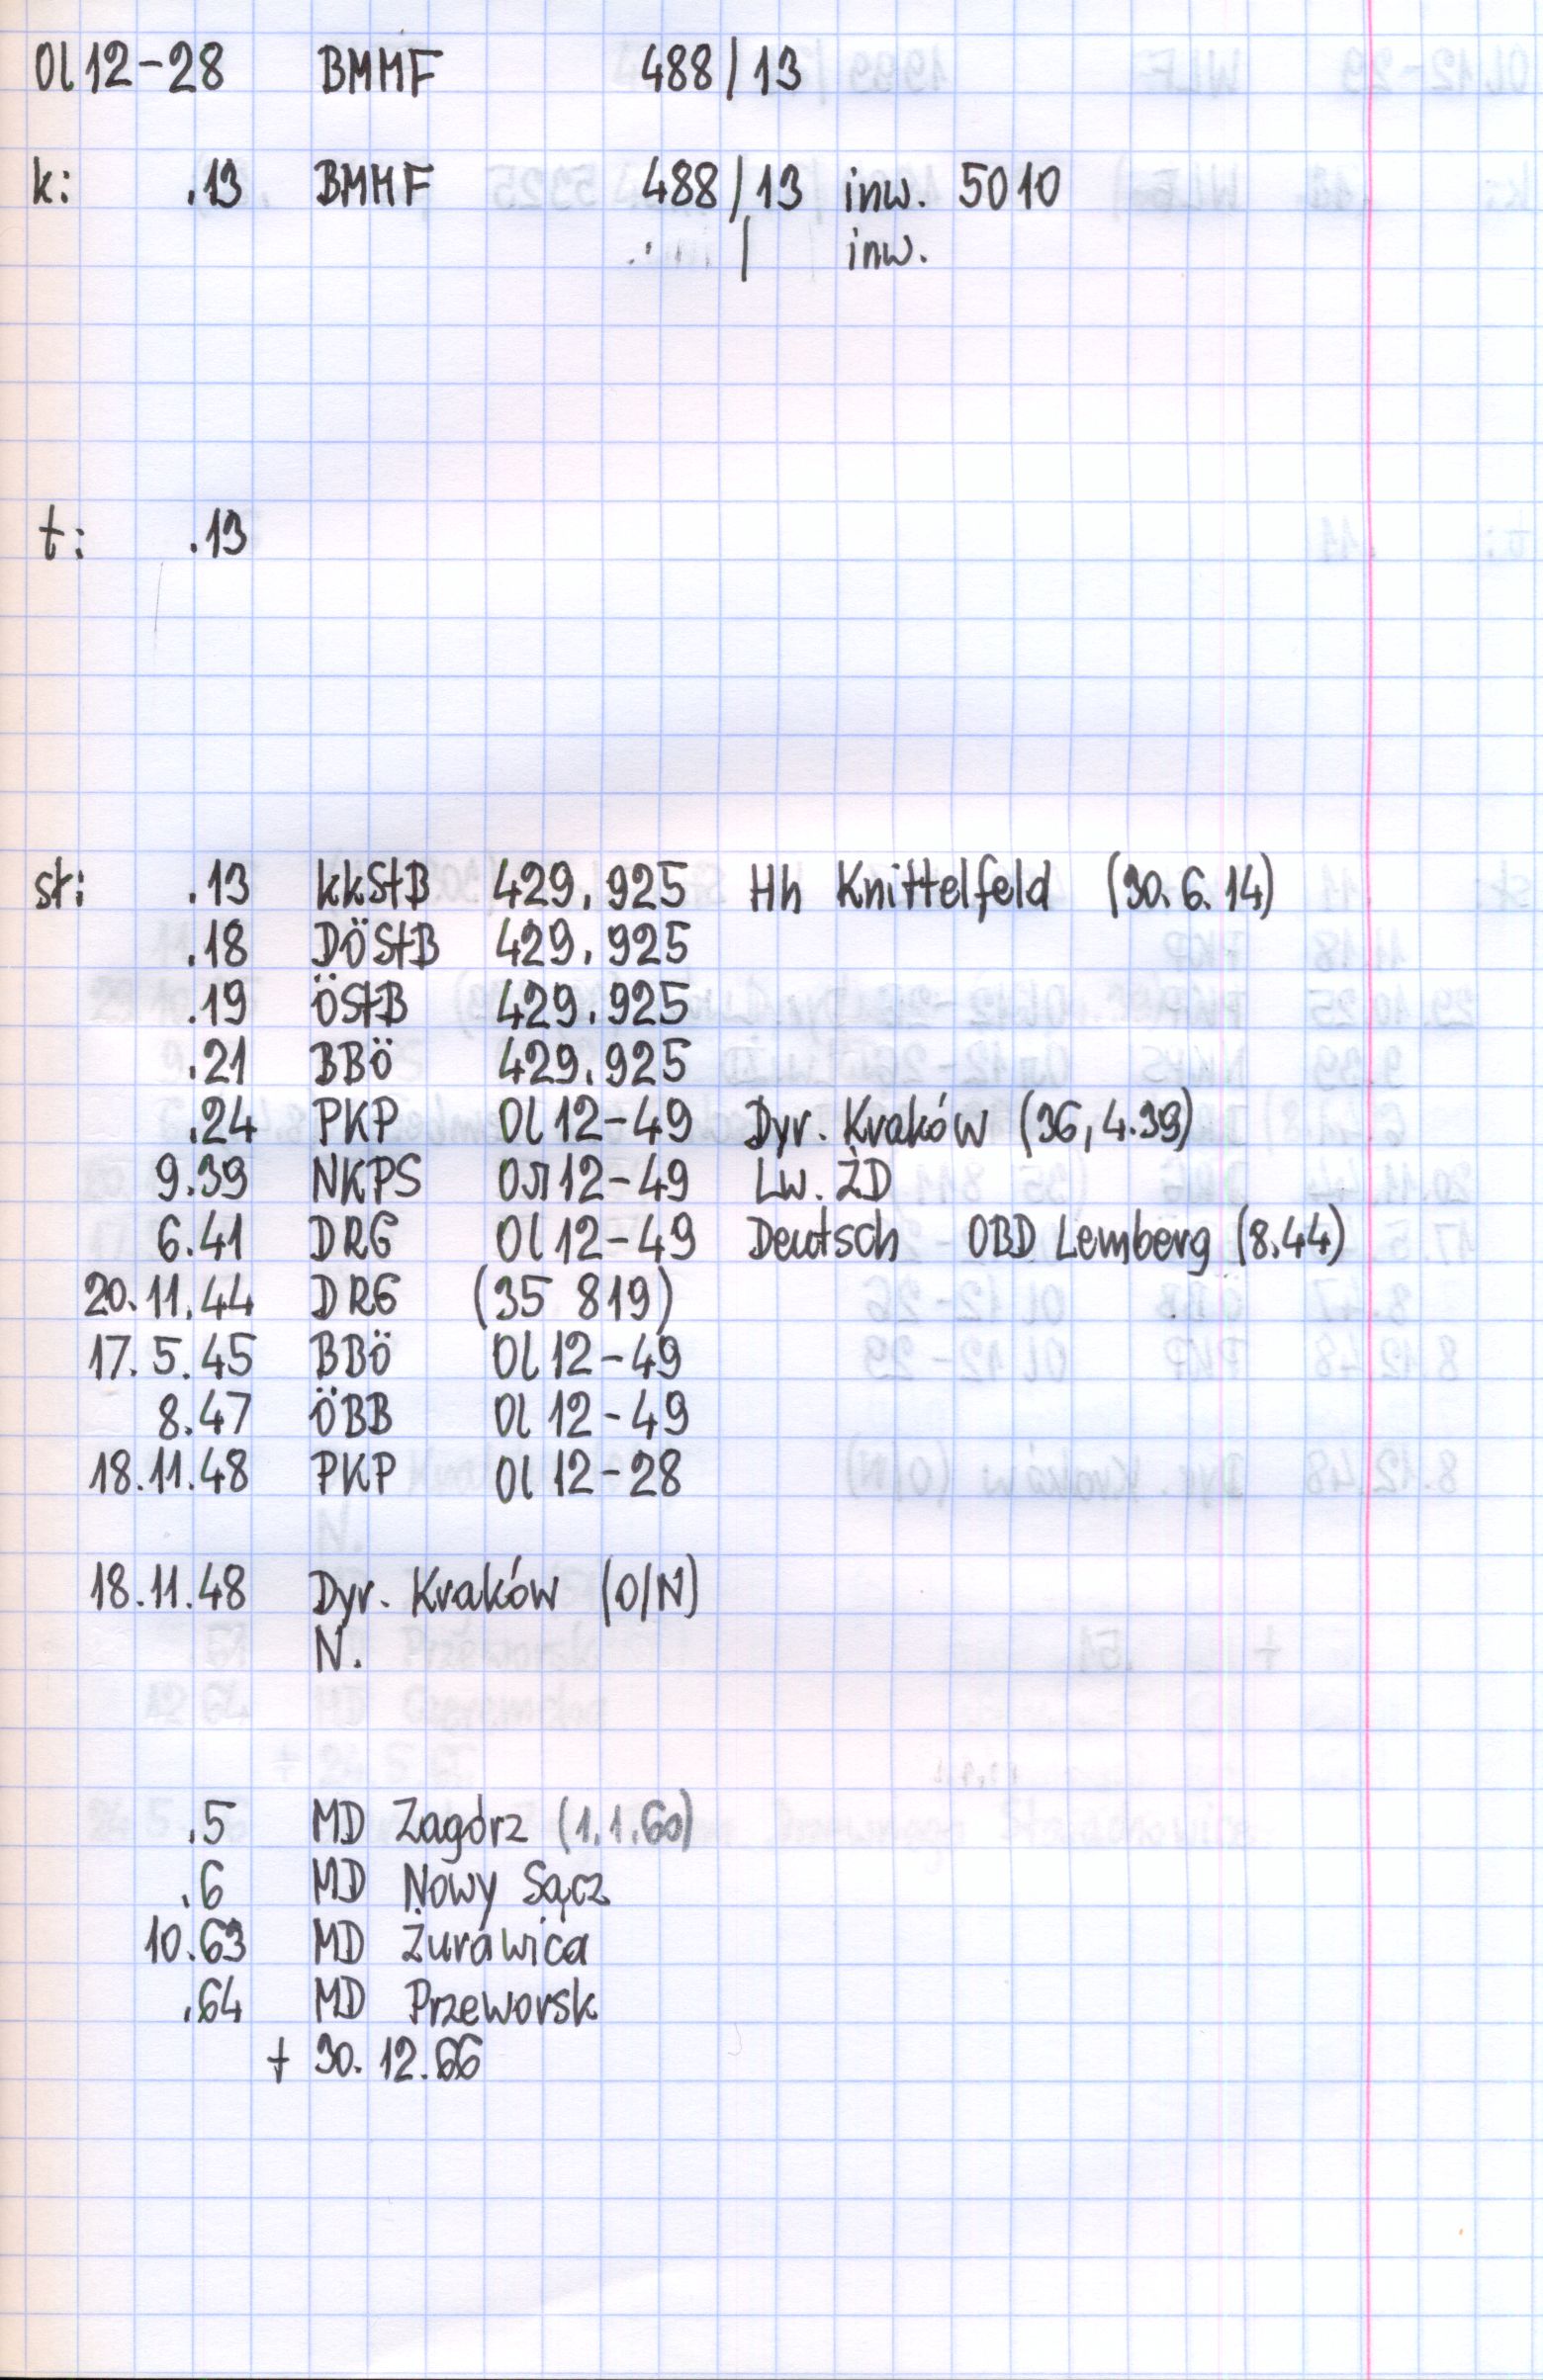 Ol12-28 BMMF 488/13
k: .13 BMMF 488/13 inw. 5010
/ inw.
t: .13
st: .13 kkStB 429.925 Hh Knittelfeld (30.6.14)
.18 DÖStB 429.925
.19 ÖStB 429.925
.21 BBÖ 429.925
.24 PKP Ol12-49 Dyr. Kraków (36, 4.39)
9.39 NKPS Oл12-49 Lw. ŻD
6.41 DRG Ol12-49 Deutsch OBD Lemberg (8.44)
20.11.44 DRG (35 819)
17.5.45 BBÖ Ol12-49
8.47 ÖBB Ol12-49
18.11.48 PKP Ol12-28
18.11.48 Dyr. Kraków (O/N)
N.
.5 MD Zagórz (1.1.60)
.6 MD Nowy Sącz
10.63 MD Żurawica
.64 MD Przeworsk
+ 30.12.66